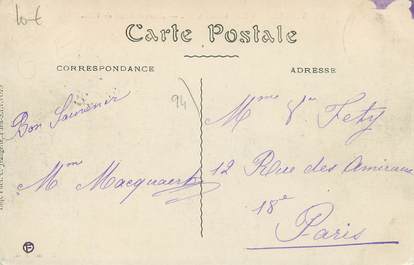 10 €
Carte Postale
CORRESPONDANCE
ADRESSE
94
Bon Souvenir
Mme Macquaert
Mme Fety
12 Rue des Amiraux
18e
Paris